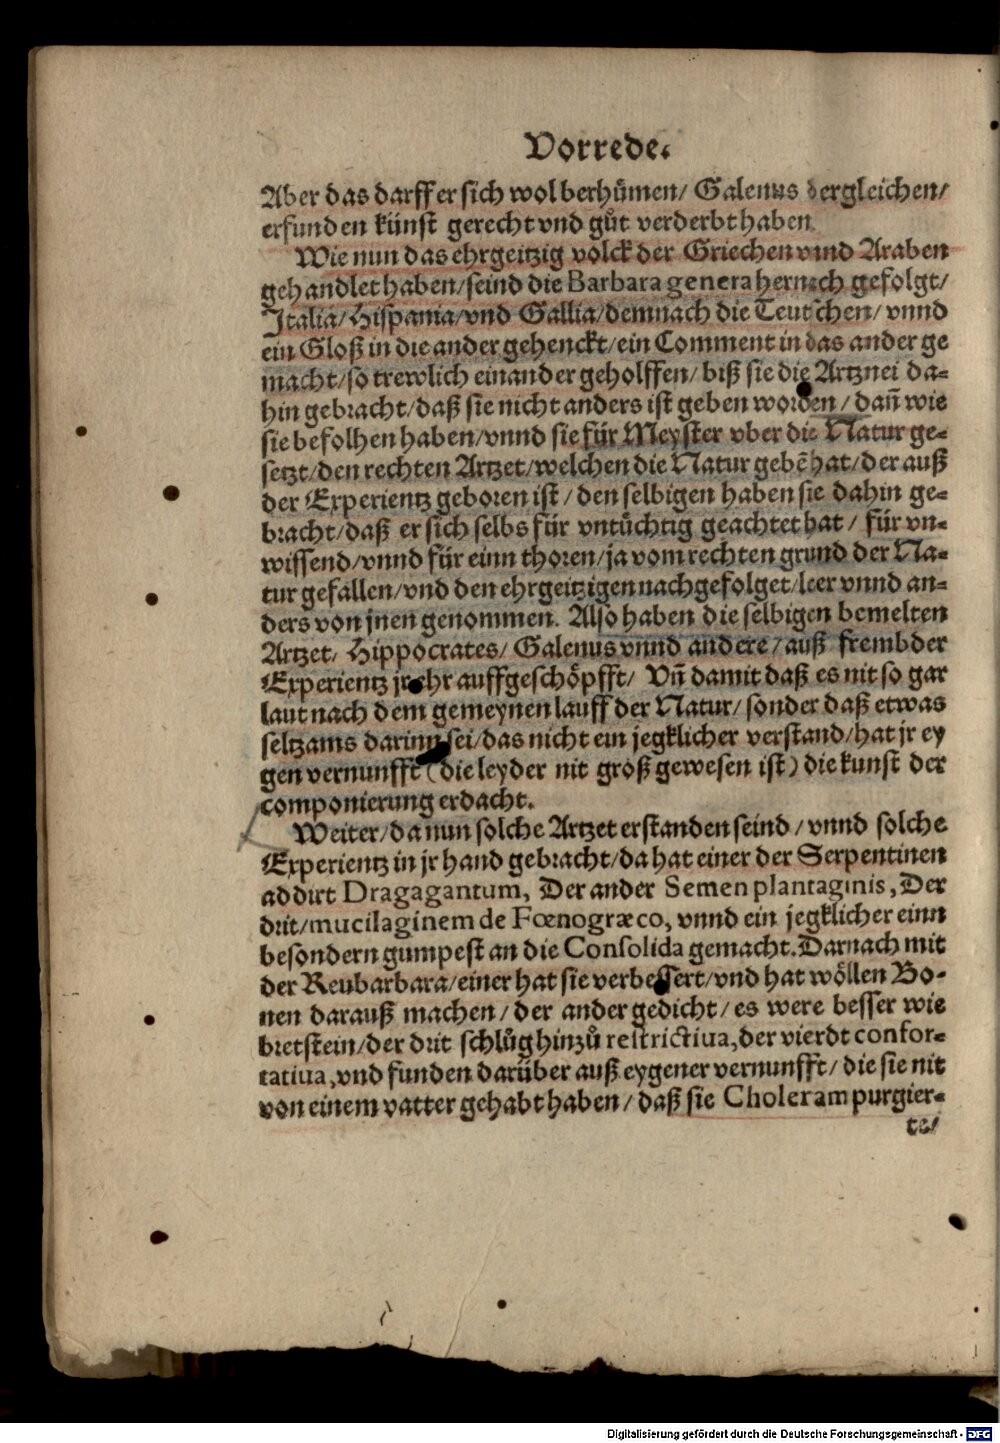 Vorrede.
Aber das darff er sich wol berhümen/ Galenus dergleichen/
erfunden künst gerecht vnd gůt verderbt haben
Wie nun das ehrgeitzig volck der Griechen vnnd Araben
gehandlet haben/seind die Barbara genera hernach gefolgt/
Italia/Hispania/vnd Gallia/demnach die Teutschen/ vnnd
ein Gloß in die ander gehenckt/ein Comment in das ander ge
macht/so trewlich einander geholffen/ biß sie die Artznei da-
hin gebracht/daß sie nicht anders ist geben worden/ dañ wie
sie befolhen haben/vnnd sie für Meyster vber die Natur ge-
setzt/den rechten Artzet/welchen die Natur gebẽ hat/der auß
der Experientz geboren ist/den selbigen haben sie dahin ge-
bracht/daß er sich selbs für vntüchtig geachtet hat/ für vn-
wissend/vnnd für einn thoren/ja vom rechten grund der Na-
tur gefallen/vnd den ehrgeitzigen nachgefolget/leer vnnd an-
ders von jnen genommen. Also haben die selbigen bemelten
Artzet/ Hippocrates/ Galenus vnnd andere/auß frembder
Experientz jr ehr auffgeschöpfft/ Vñ damit daß es nit so gar
laut nach dem gemeynen lauff der Natur/sonder daß etwas
seltzams darinn sei/das nicht ein jegklicher verstand/hat jr ey
gen vernunfft (die leyder nit groß gewesen ist) die kunst der
componierung erdacht.
Weiter/da nun solche Artzet erstanden seind/vnnd solche
Experientz in jr hand gebracht/da hat einer der Serpentinen
addirt Dragagantum, Der ander Semen plantaginis, Der
drit/mucilaginem de Fœnogræco, vnnd ein jegklicher einn
besondern gumpest an die Consolida gemacht. Darnach mit
der Reubarbara/einer hat sie verbessert/vnd hat wöllen Bo-
nen darauß machen/der ander gedicht/es were besser wie
bretstein/der drit schlůg hinzů restrictiua, der vierdt confor-
tatiua, vnd funden darüber auß eygener vernunfft/ die sie nit
von einem vatter gehabt haben/ daß sie Choleram purgier-
te/
Digitalisierung gefördert durch die Deutsche Forschungsgemeinschaft - DFG